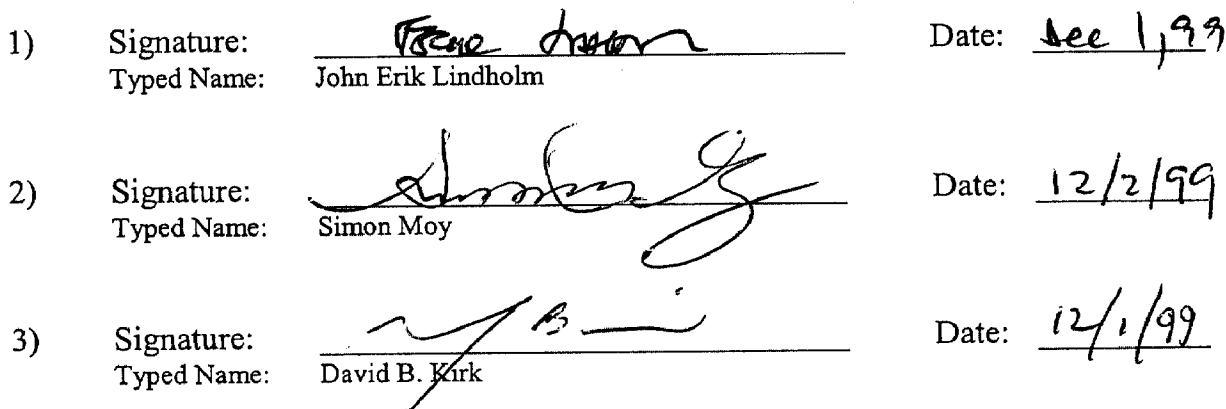 1) Signature: Date: Dec 1, 99
Typed Name: John Erik Lindholm
2) Signature: Date: 12/2/99
Typed Name: Simon Moy
3) Signature: Date: 12/1/99
Typed Name: David B. Kirk